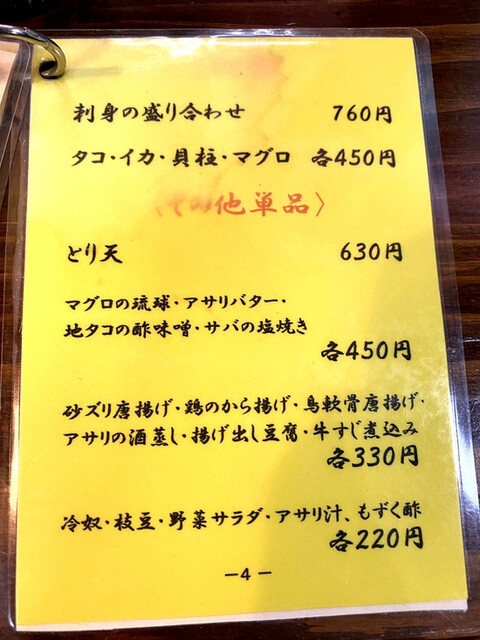 刺身の盛り合わせ 760円
タコ・イカ・貝柱・マグロ 各450円
〈その他単品〉
とり天 630円
マグロの琉球・アサリバター・
地タコの酢味噌・サバの塩焼き
各450円
砂ズリ唐揚げ・鶏のから揚げ・鳥軟骨唐揚げ・
アサリの酒蒸し・揚げ出し豆腐・牛すじ煮込み
各330円
冷奴・枝豆・野菜サラダ・アサリ汁、もずく酢
各220円
－4－